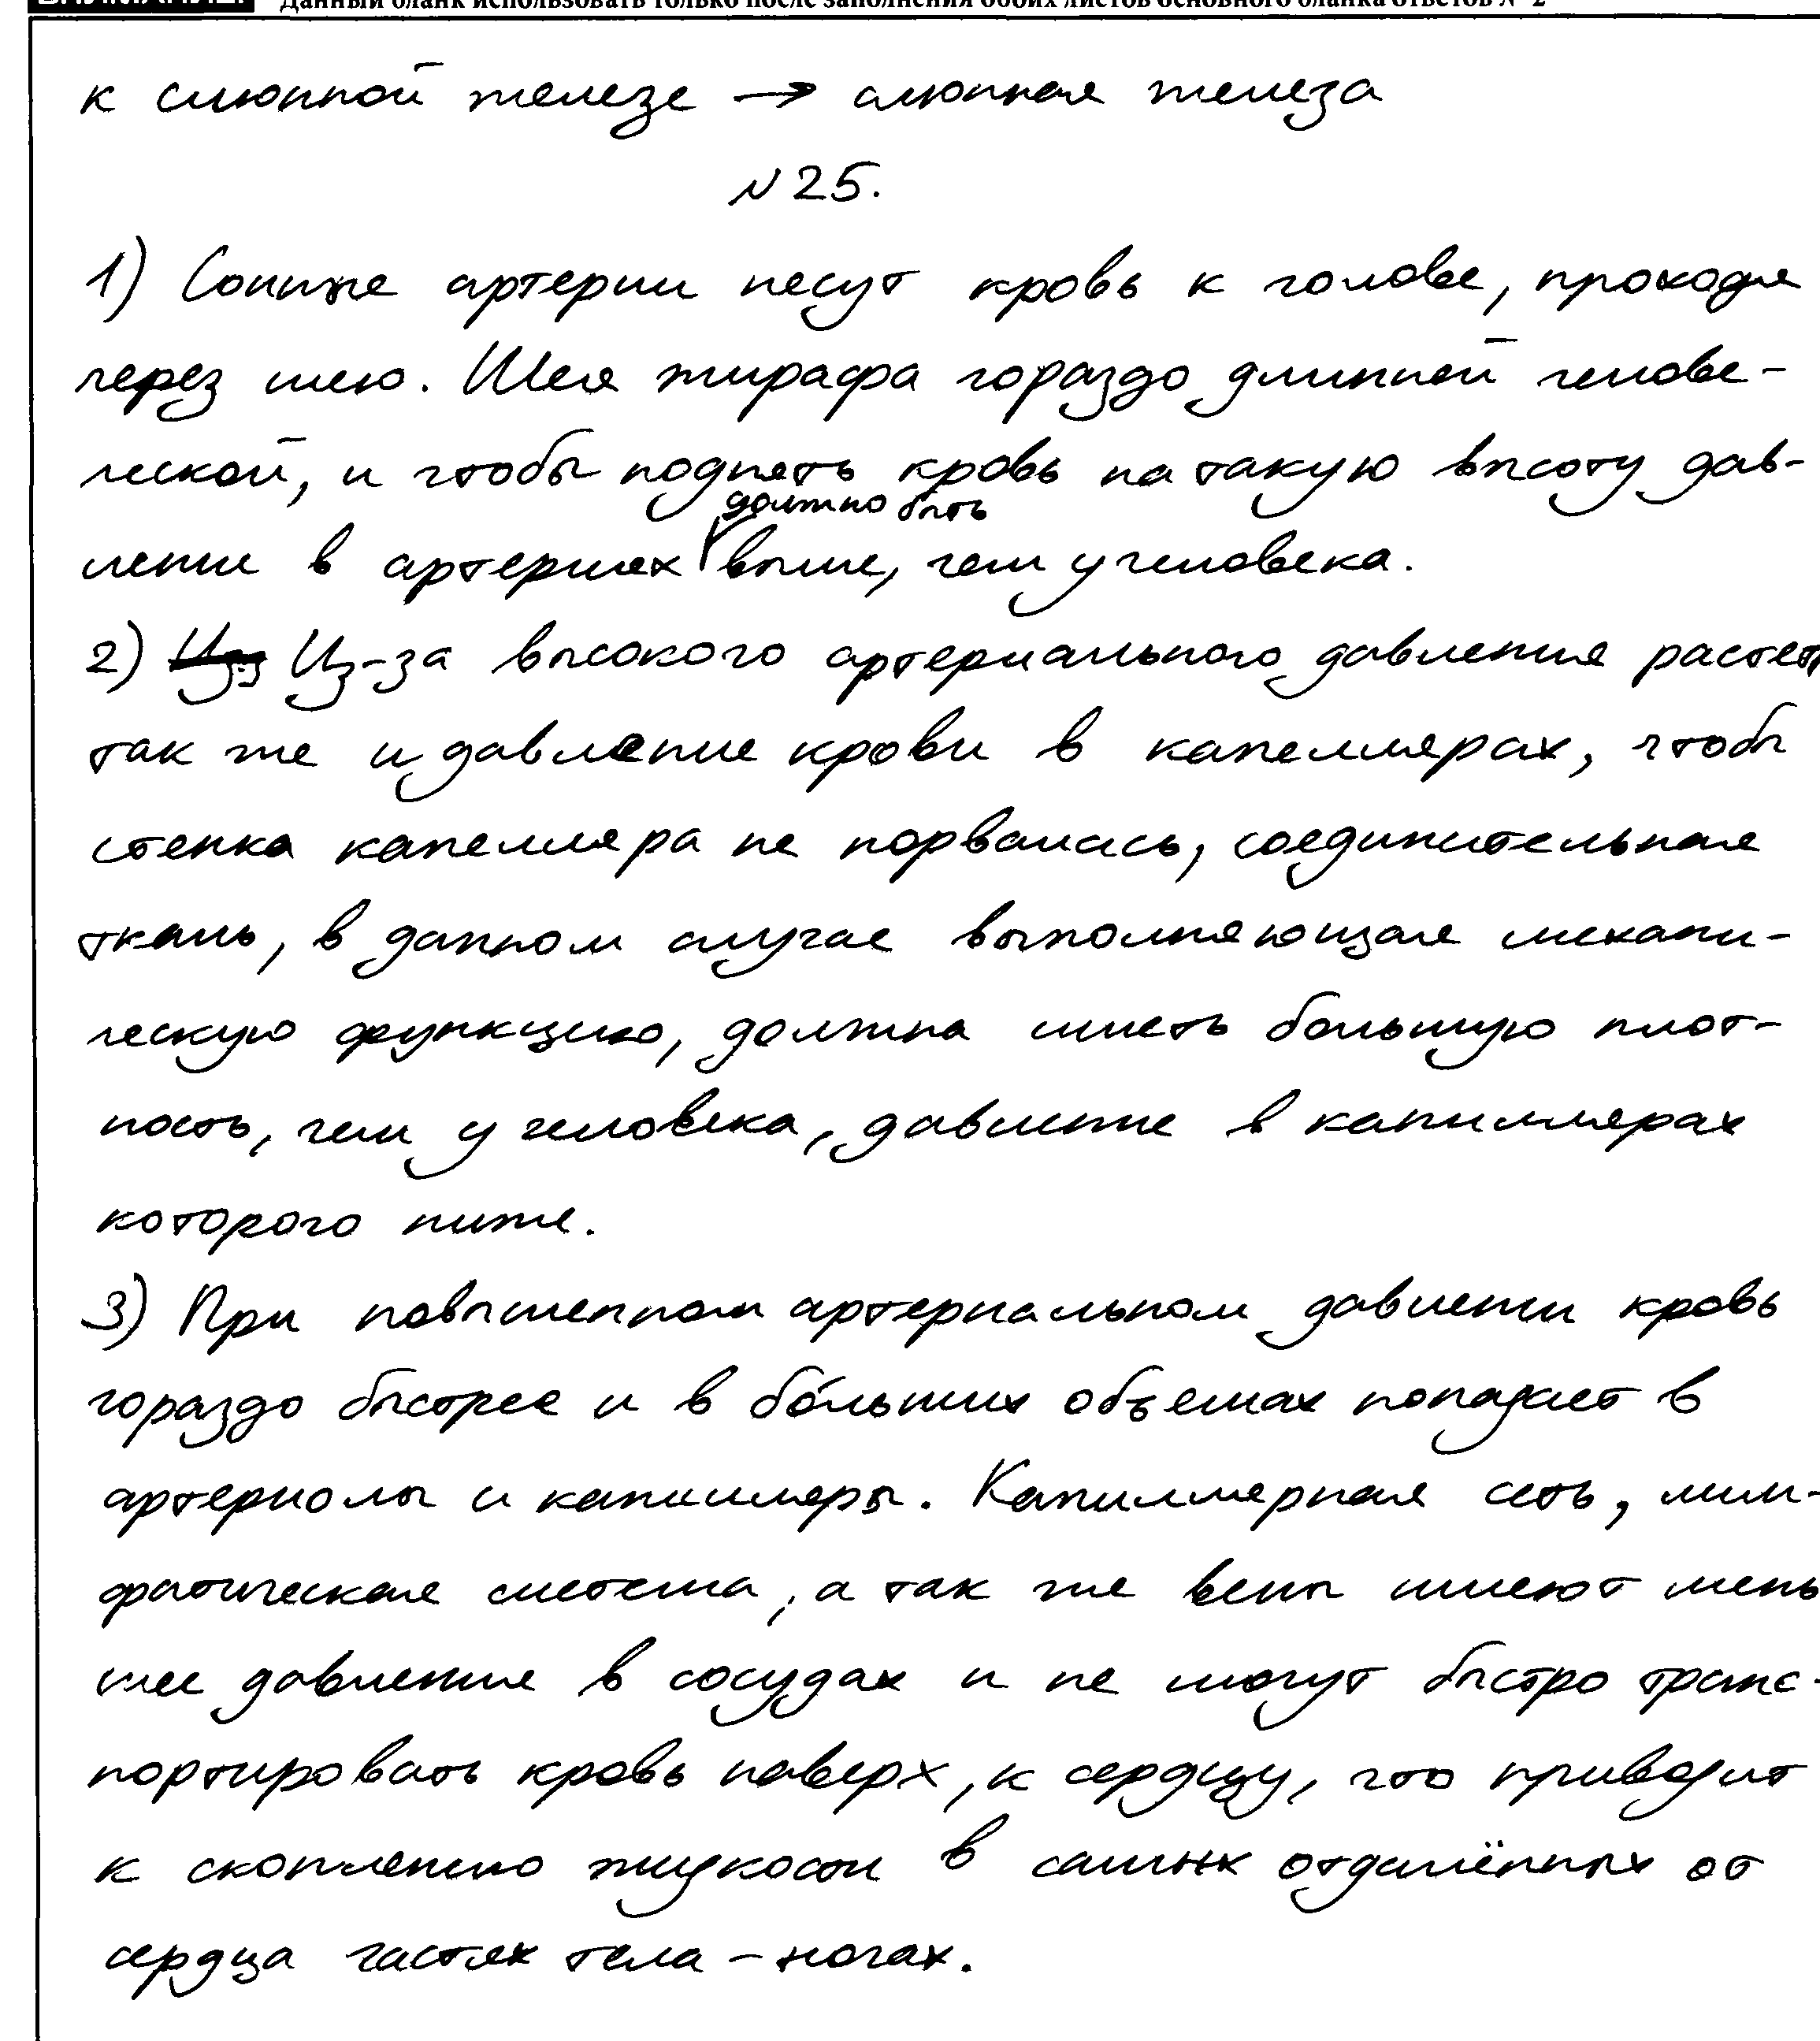 Данный бланк использовать только после заполнения обоих листов основного бланка ответов № 2
к слюнной железе → слюнная железа
№ 25.
1) Сонные артерии несут кровь к голове, проходя
через шею. Шея жирафа гораздо длинней челове-
ческой, и чтобы поднять кровь на такую высоту дав-
должно быть
ление в артериях выше, чем у человека.
2) Из-за высокого артериального давления растет
так же и давление крови в капеллярах, чтобы
стенка капелляра не порвалась, соединительная
ткань, в данном случае выполняющая механи-
ческую функцию, должна иметь большую плот-
ность, чем у человека, давление в капиллярах
которого ниже.
3) При повышенном артериальном давлении кровь
гораздо быстрее и в бо́льших объемах попадает в
артериолы и капилляры. Капиллярная сеть, лим-
фатическая система, а так же вены имеют мень
шее давление в сосудах и не могут быстро транс-
портировать кровь наверх, к сердцу, что приводит
к скоплению жидкости в самых отдалённых от
сердца частях тела – ногах.